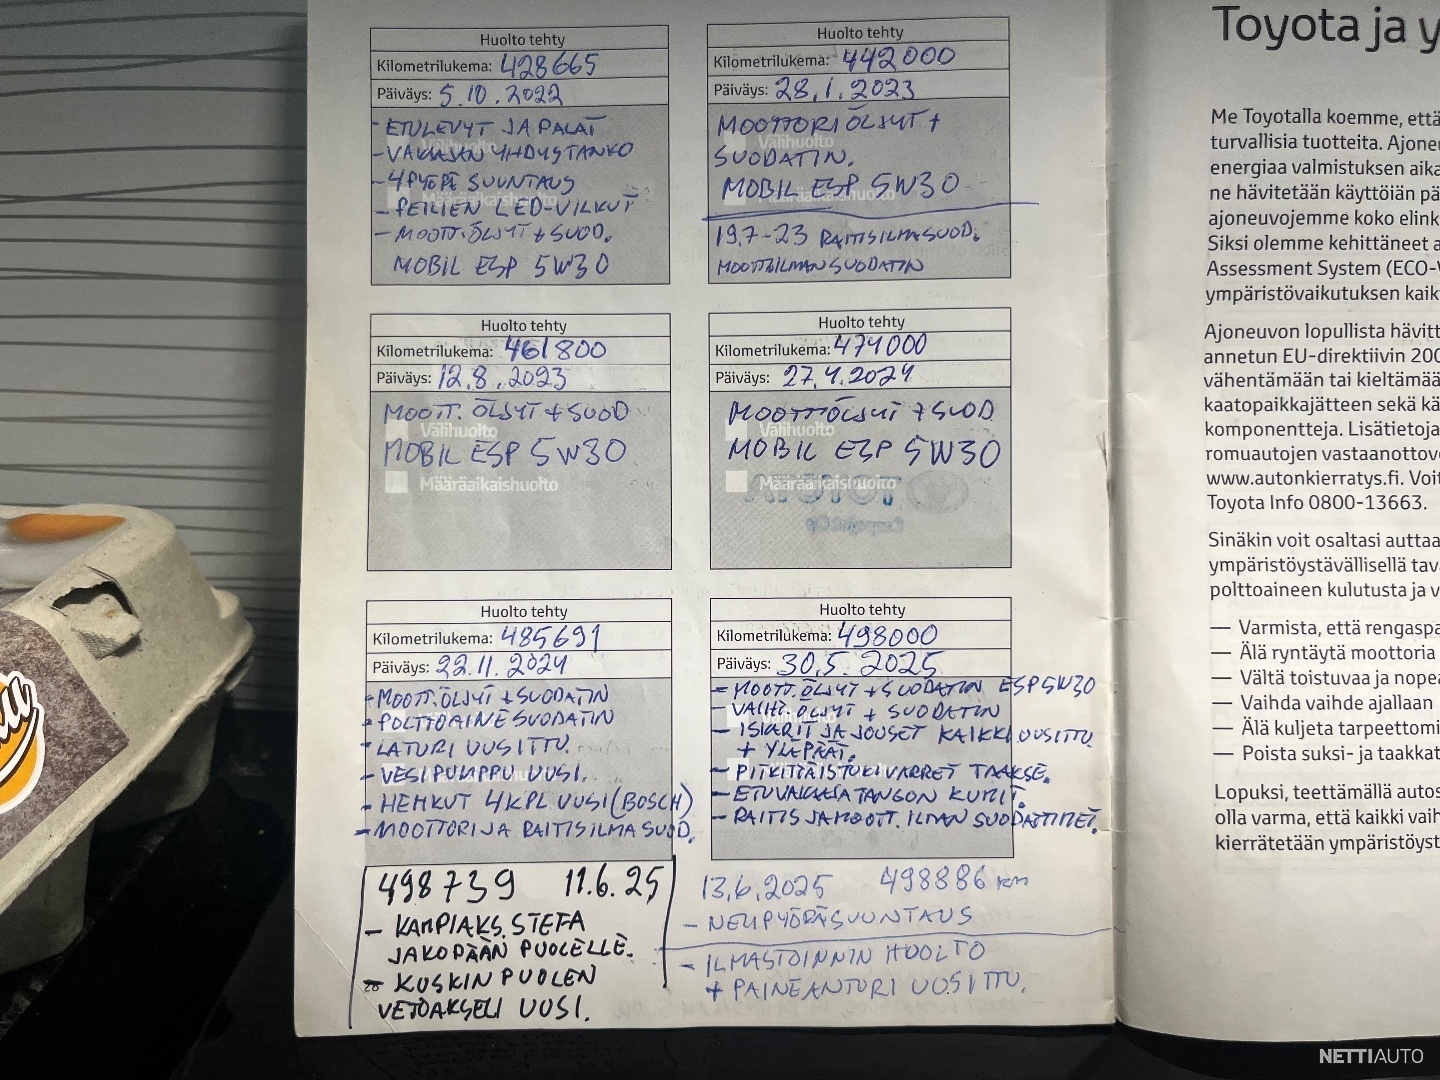 Huolto tehty
Kilometrilukema: 428665
Päiväys: 5.10.2022
- ETULEVYT JA PALAT
- VAKAJAN YHDYSTANKO
- 4PYÖRÄ SUUNTAUS
- PEILIEN LED-VILKUT
- MOOTT.ÖLJYT + SUOD.
MOBIL ESP 5W30
Välihuolto
Määräaikaishuolto
Huolto tehty
Kilometrilukema: 442000
Päiväys: 28.1.2023
MOOTTORIÖLJYT +
SUODATIN.
MOBIL ESP 5W30
19.7-23 RAITISILMASUOD.
MOOTT.ILMANSUODATIN
Välihuolto
Määräaikaishuolto
Huolto tehty
Kilometrilukema: 461800
Päiväys: 12.8.2023
MOOTT. ÖLJYT + SUOD
Välihuolto
MOBIL ESP 5W30
Määräaikaishuolto
Huolto tehty
Kilometrilukema: 474000
Päiväys: 27.4.2024
MOOTTÖLJYT + SUOD
Välihuolto
MOBIL ESP 5W30
Määräaikaishuolto
Huolto tehty
Kilometrilukema: 485691
Päiväys: 22.11.2024
- MOOTT.ÖLJYT + SUODATIN
- POLTTOAINESUODATIN
- LATURI UUSITTU.
- VESIPUMPPU UUSI.
- HEHKUT 4KPL UUSI (BOSCH)
- MOOTTORI JA RAITISILMA SUOD.
Huolto tehty
Kilometrilukema: 498000
Päiväys: 30.5.2025
- MOOTT.ÖLJYT + SUODATIN ESP5W30
- VAIHT.ÖLJYT + SUODATIN
- ISKARIT JA JOUSET KAIKKI UUSITTU
+ YLÄPÄÄT.
- PITKITTÄISTUKIVARRET TAAKSE.
- ETUVAKAAJATANGON KUMIT.
- RAITIS JA MOOTT. ILMAN SUODATTIMET.
498739 11.6.25
- KAMPIAKS. STEFA
JAKOPÄÄN PUOLELLE.
- KUSKIN PUOLEN
VETOAKSELI UUSI.
13.6.2025 498886 km
- NELIPYÖRÄSUUNTAUS
- ILMASTOINNIN HUOLTO
+ PAINEANTURI UUSITTU.
Toyota ja y
Me Toyotalla koemme, että
turvallisia tuotteita. Ajoneu
energiaa valmistuksen aika
ne hävitetään käyttöiän pä
ajoneuvojemme koko elink
Siksi olemme kehittäneet a
Assessment System (ECO-V
ympäristövaikutuksen kaik
Ajoneuvon lopullista hävitt
annetun EU-direktiivin 200
vähentämään tai kieltämää
kaatopaikkajätteen sekä kä
komponentteja. Lisätietoja
romuautojen vastaanottov
www.autonkierratys.fi. Voit
Toyota Info 0800-13663.
Sinäkin voit osaltasi auttaa
ympäristöystävällisellä tav
polttoaineen kulutusta ja v
— Varmista, että rengaspa
— Älä ryntäytä moottoria
— Vältä toistuvaa ja nopea
— Vaihda vaihde ajallaan
— Älä kuljeta tarpeettomi
— Poista suksi- ja taakkat
Lopuksi, teettämällä autos
olla varma, että kaikki vaih
kierrätetään ympäristöyst
NETTIAUTO